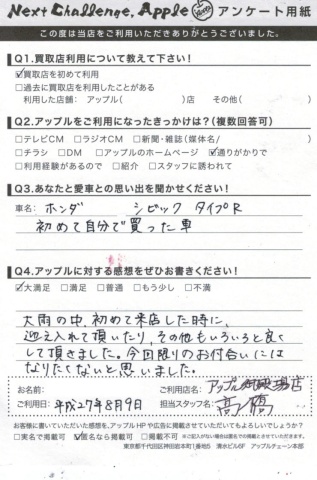 Next Challenge, Apple アンケート用紙
この度は当店をご利用いただきありがとうございました。
Q1.買取店利用について教えて下さい!
☑買取店を初めて利用
□過去に買取店を利用したことがある
利用した店舗: アップル( )店 その他( )
Q2.アップルをご利用になったきっかけは?(複数回答可)
□テレビCM □ラジオCM □新聞・雑誌(媒体名/ )
□チラシ □DM □アップルのホームページ ☑通りがかりで
□利用経験があるので □紹介 □スタッフに誘われて
Q3.あなたと愛車との思い出を聞かせください!
車名: ホンダ シビック タイプR
初めて自分で買った車
Q4.アップルに対する感想をぜひお書きください!
☑大満足 □満足 □普通 □もう少し □不満
大雨の中、初めて来店した時に、
迎え入れて頂いたり、その他もいろいろと良く
して頂きました。今回限りのお付合いには
なりたくないと思いました。
お名前: ご利用店名: アップル 店
ご利用日: 平成27年8月9日 担当スタッフ名: 高橋
お客様に書いていただいた感想を、アップルHPや広告に掲載させていただいてもよろしいでしょうか?
□実名で掲載可 ☑匿名なら掲載可 □掲載不可 ※ご記入がない場合は匿名での掲載とさせていただきます。
東京都千代田区神田岩本町1番地5 清水ビル6F アップルチェーン本部